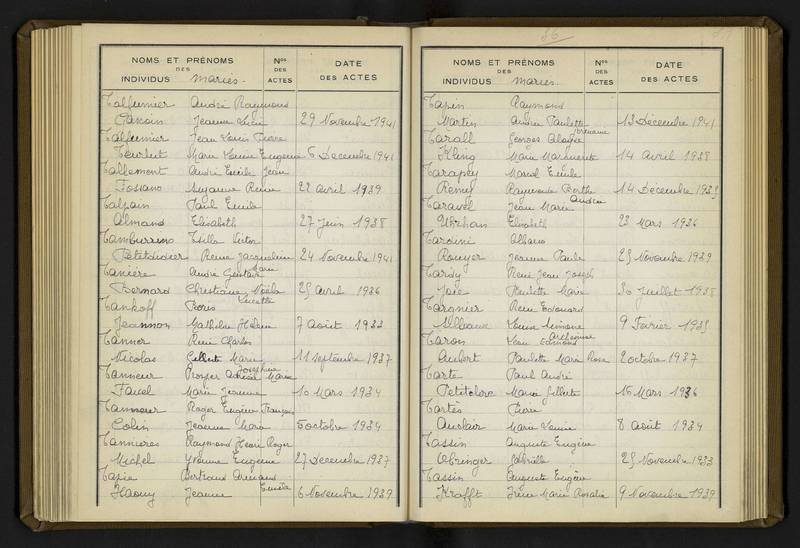 NOMS ET PRÉNOMS
DES
INDIVIDUS mariés.
Nos
DES
ACTES
DATE
DES ACTES
Talfumier André Raymond
Jeanne 29 Novembre 1941
Talfumier Jean Louis Pierre
Marie Louise Eugenie 6 Decembre 1941
Tallement André Emile Jean
Fossano Suzanne Reine 22 avril 1939
Talpain Paul Emile
Almand Elisabeth 27 Juin 1938
Tamburrino
Petitdidier Reine Jacqueline 24 Novembre 1941
Tanière André Gustave
Bernard Christiane Noële Lucette 25 avril 1936
Tankoff Boris
Jeannon Mathilde Hélène 7 août 1933
Tanner René Charles
Nicolas Gilberte Marie 11 septembre 1937
Tanneur Prosper Marie
Favel Marie Jeanne 10 Mars 1934
Tanneur Roger Eugène François
Colin Jeanne Marie 6 octobre 1934
Tannieres Raymond Henri Roger
Michel Yvonne Eugenie 27 Decembre 1937
Tapie Bertrand Armand
Haouy Jeanne 6 Novembre 1939
86
NOMS ET PRÉNOMS
DES
INDIVIDUS mariés.
Nos
DES
ACTES
DATE
DES ACTES
Tapin Raymond
Martin Andrée Paulette 13 Décembre 1941
Tarall Georges
Kling Marie Marguerite 14 avril 1938
Tarapey Marcel Emile
Remy Raymonde Berthe 14 Décembre 1935
Taravel Jean Marie Andrée
Elisabeth 23 Mars 1936
Tardini Albano
Rouyer Jeanne Paule 25 Novembre 1939
Tardy René Jean Joseph
Joie Paulette Marie 30 Juillet 1938
Targnier René Edouard
Louise Simone 9 Février 1935
Taron Jean Edmond
Aubert Paulette Marie Rose 2 octobre 1937
Tarte Paul André
Petitclerc Marie Gilberte 16 Mars 1936
Tartès Pierre
Auclair Marie Louise 8 août 1934
Tassin Auguste Eugène
Obringer Gabrielle 25 Novembre 1933
Tassin Auguste Eugène
Krafft Irène Marie Rosalie 9 Novembre 1939